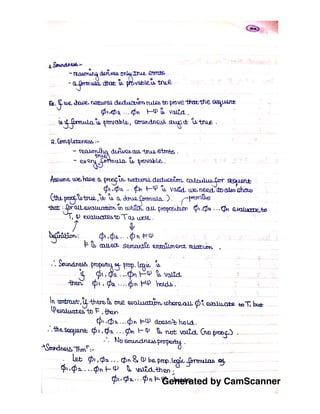 1. Soundness :-
- reasoning derives only true stmts
- a formula that is provable is true
Ex. If we have natural deduction rules to prove that the sequent
ϕ1, ϕ2 ... ϕn ⊢ ψ is valid.
ie if formula is provable, soundness says it is true.
2. Completeness :-
- reasoning derives all true stmts.
- every true formula is provable.
Assume we have a proof in natural deduction calculus for sequent
ϕ1, ϕ2 .. ϕn ⊢ ψ is valid we need to also show
(the proof is true, ie is a true formula.)
that for all evaluation in which all proposition ϕ1, ϕ2 ... ϕn evaluate to
T, ψ evaluates to T as well.
Definition: ϕ1, ϕ2 ... ϕn ⊨ ψ
⊨ is called semantic entailment relation.
∴ Soundness property of prop. logic is
if ϕ1, ϕ2 ... ϕn ⊢ ψ is valid
then ϕ1, ϕ2 ... ϕn ⊨ ψ holds.
In contrast, if there is one evaluation where all ϕi evaluate to T, but
ψ evaluates to F, then
ϕ1, ϕ2 ... ϕn ⊨ ψ doesn't hold.
∴ the sequent ϕ1, ϕ2 ... ϕn ⊢ ψ is not valid (no proof).
∴ No soundness property.
"Soundness Thm":-
Let ϕ1, ϕ2 ... ϕn & ψ be prop. logic formulas if
ϕ1, ϕ2 ... ϕn ⊢ ψ is valid then,
ϕ1, ϕ2 ... ϕn ⊨ ψ
Generated by CamScanner